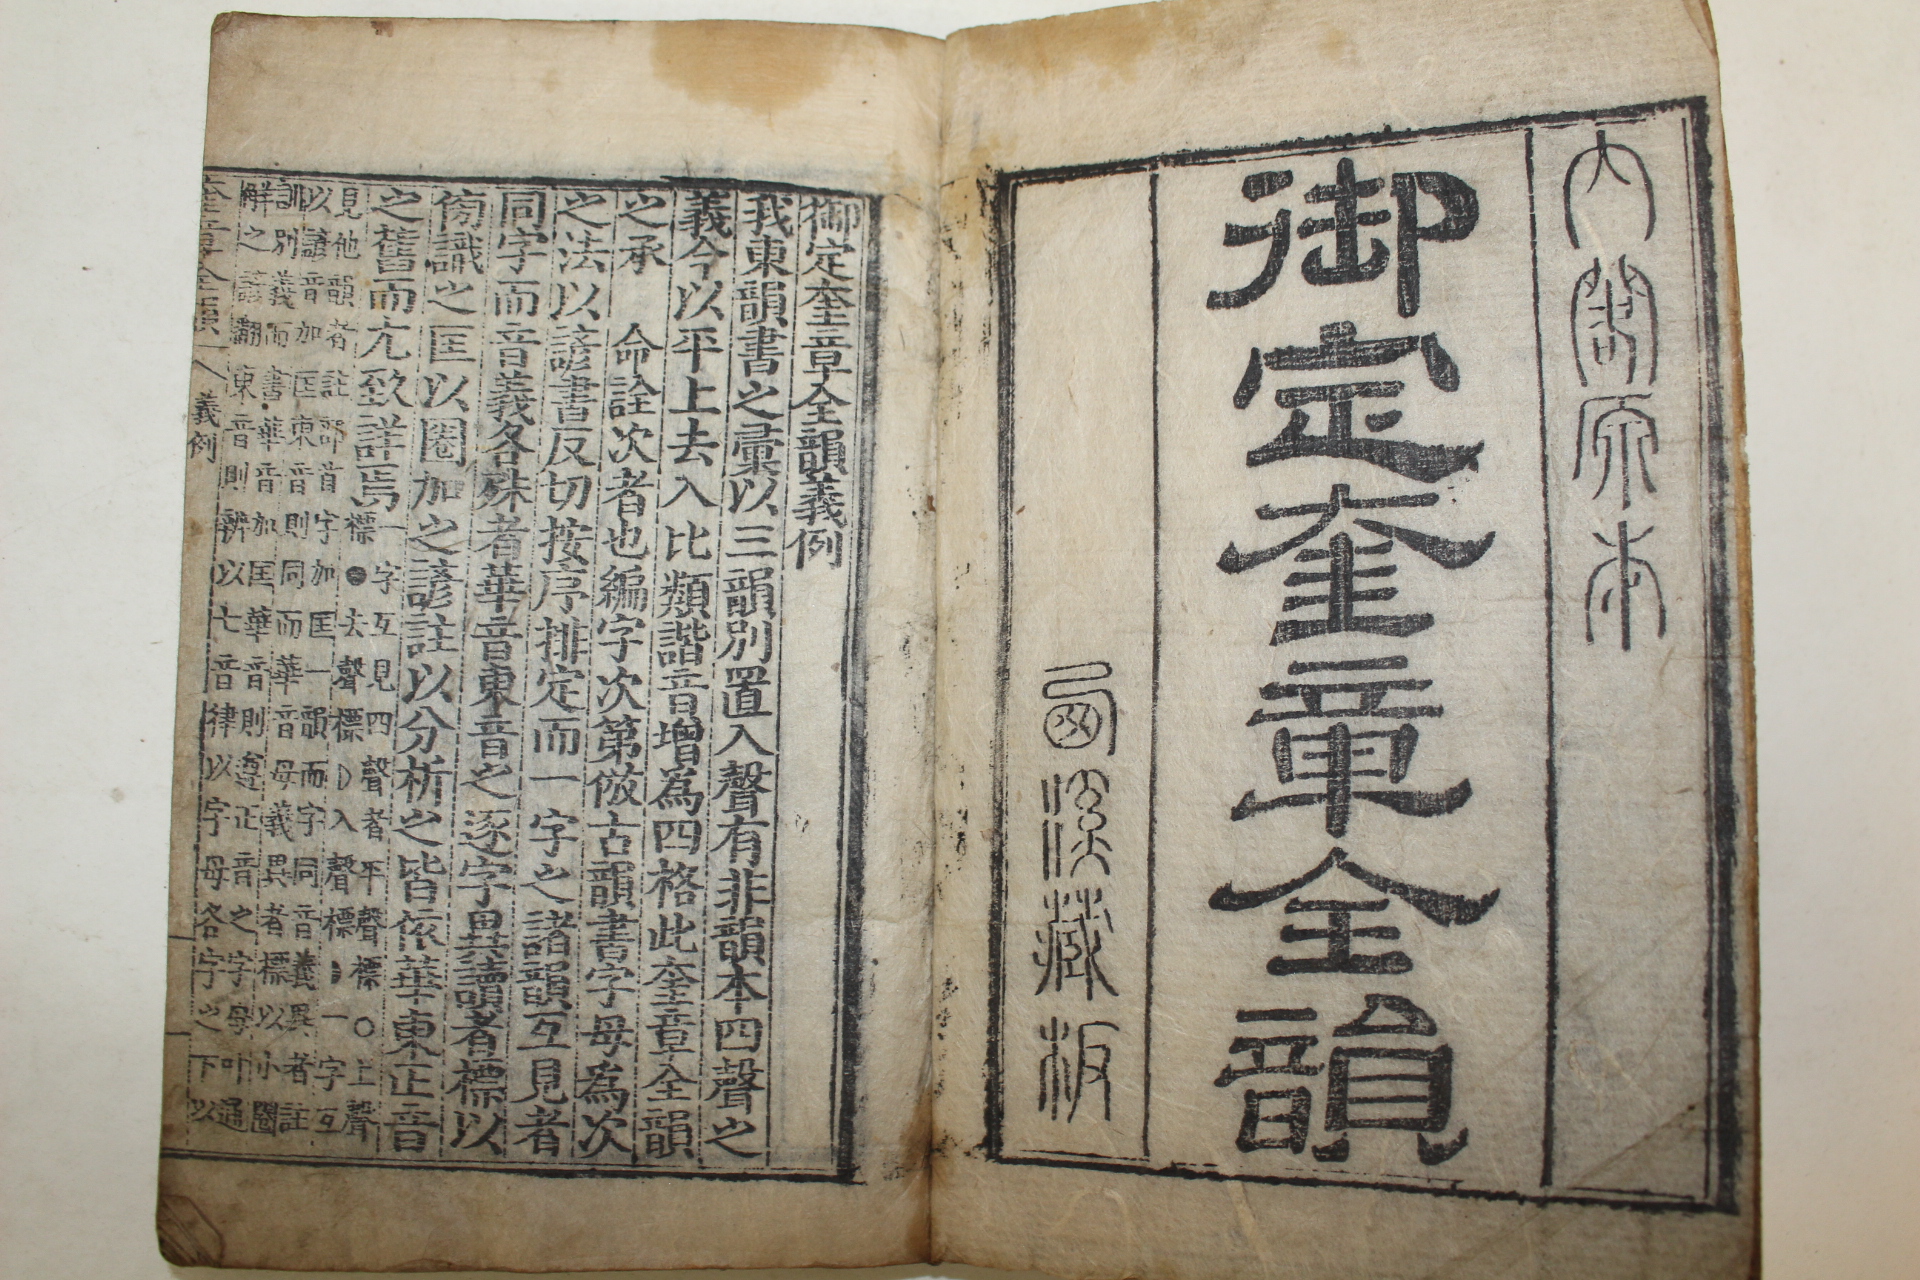 內閣原本
御定奎章全韻
藏板
御定奎章全韻義例
我東韻書之彙以三韻別置入聲有非韻本四聲之
義今以平上去入比類諧音增為四格此奎章全韻
之承 命詮次者也編字次第倣古韻書字母為次
之法以諺書反切按序排定而一字之諸韻互見者
同字而音義各殊者華音東音之逐字異讀者標以
傍識之匡以圈加之諺註以分析之皆依華東正音
之舊而亢致詳焉
一字互見四聲者平聲標○上聲
標●去聲標入聲標一字互
見他韻者註部首字加匡一韻而字同音義異者註
以諺音加匡東音則同而華音母義異者標以小圈
訓別義而書華音加匡華音則遵正音之字母叶通
解之諺翻東音則辨以七音律以字母各字之下以
奎章全韻 義例